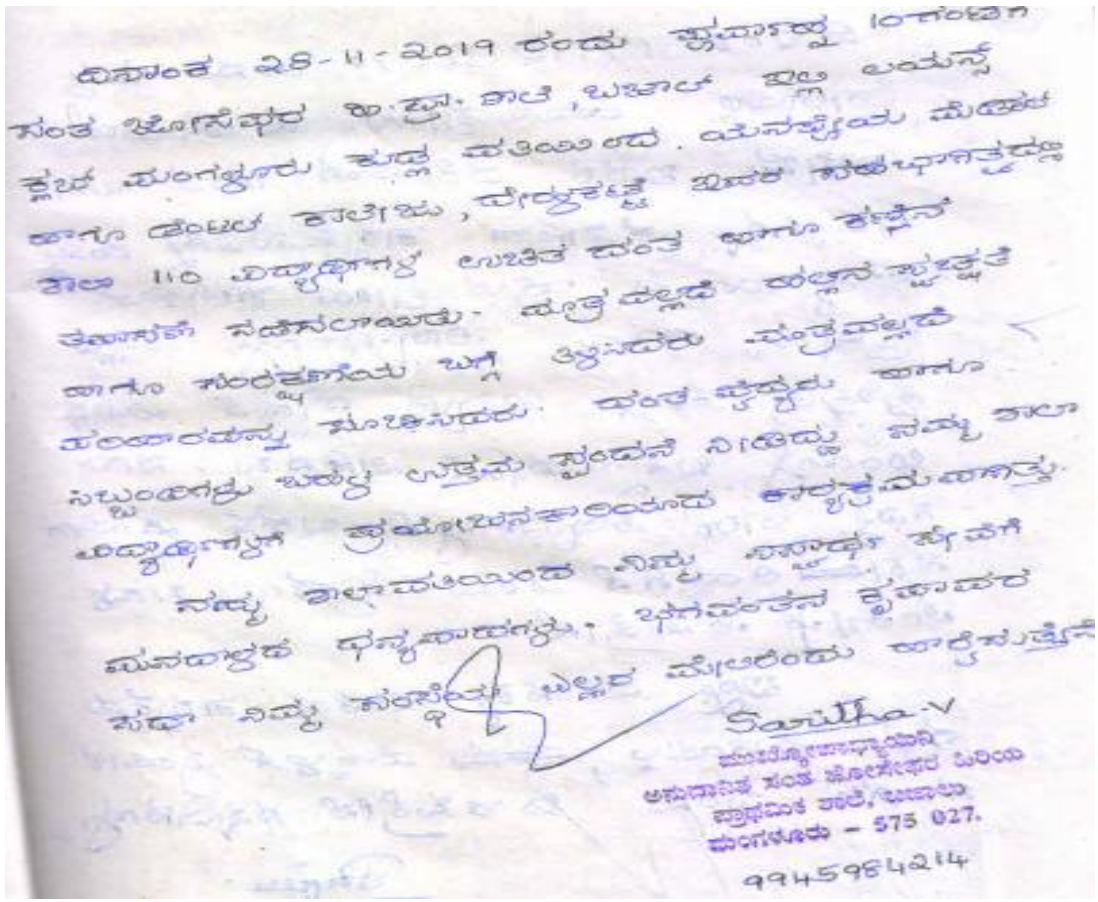 ದಿನಾಂಕ 28-11-2019 ರಂದು ಪೂರ್ವಾಹ್ನ 10 ಗಂಟೆಗೆ
ಸಂತ ಜೋಸೆಫರ ಹಿ.ಪ್ರಾ. ಶಾಲೆ, ಬಜಾಲ್ ಇಲ್ಲಿ ಲಯನ್ಸ್
ಕ್ಲಬ್ ಮಂಗಳೂರು ಕುಡ್ಲ ವತಿಯಿಂದ. ಯೆನಪೋಯ ಮೆಡಿಕಲ್
ಹಾಗೂ ಡೆಂಟಲ್ ಕಾಲೇಜು, ದೇರಳಕಟ್ಟೆ ಇವರ ಸಹಭಾಗಿತ್ವದಲ್ಲಿ
ಶಾಲಾ 110 ವಿದ್ಯಾರ್ಥಿಗಳ ಉಚಿತ ದಂತ ಹಾಗೂ ಕಣ್ಣಿನ
ತಪಾಸಣೆ ನಡೆಸಲಾಯಿತು. ಮಾತ್ರವಲ್ಲದೆ ಹಲ್ಲಿನ ಸ್ವಚ್ಛತೆ
ಹಾಗೂ ಸಂರಕ್ಷಣೆಯ ಬಗ್ಗೆ ತಿಳಿಸಿದರು ಮಾತ್ರವಲ್ಲದೆ
ಪರಿಹಾರವನ್ನು ಸೂಚಿಸಿದರು. ದಂತ ವೈದ್ಯರು ಹಾಗೂ
ಸಿಬ್ಬಂದಿಗಳು ಬಹಳ ಉತ್ತಮ ಸ್ಪಂದನೆ ನೀಡಿದ್ದು ನಮ್ಮ ಶಾಲಾ
ವಿದ್ಯಾರ್ಥಿಗಳಿಗೆ ಪ್ರಯೋಜನಕಾರಿಯಾದ ಕಾರ್ಯಕ್ರಮವಾಗಿತ್ತು.
ನಮ್ಮ ಶಾಲಾವತಿಯಿಂದ ನಿಮ್ಮ ನಿಸ್ವಾರ್ಥ ಸೇವೆಗೆ
ಮನದಾಳದ ಧನ್ಯವಾದಗಳು. ಭಗವಂತನ ಕೃಪಾವರ
ಸದಾ ನಿಮ್ಮ ಸಂಸ್ಥೆಯ ಎಲ್ಲರ ಮೇಲಿರಲೆಂದು ಹಾರೈಸುತ್ತೇನೆ
Saritha.V
ಮುಖ್ಯೋಪಾಧ್ಯಾಯಿನಿ
ಅನುದಾನಿತ ಸಂತ ಜೋಸೆಫರ ಹಿರಿಯ
ಪ್ರಾಥಮಿಕ ಶಾಲೆ, ಬಜಾಲು
ಮಂಗಳೂರು - 575 027.
9945984214